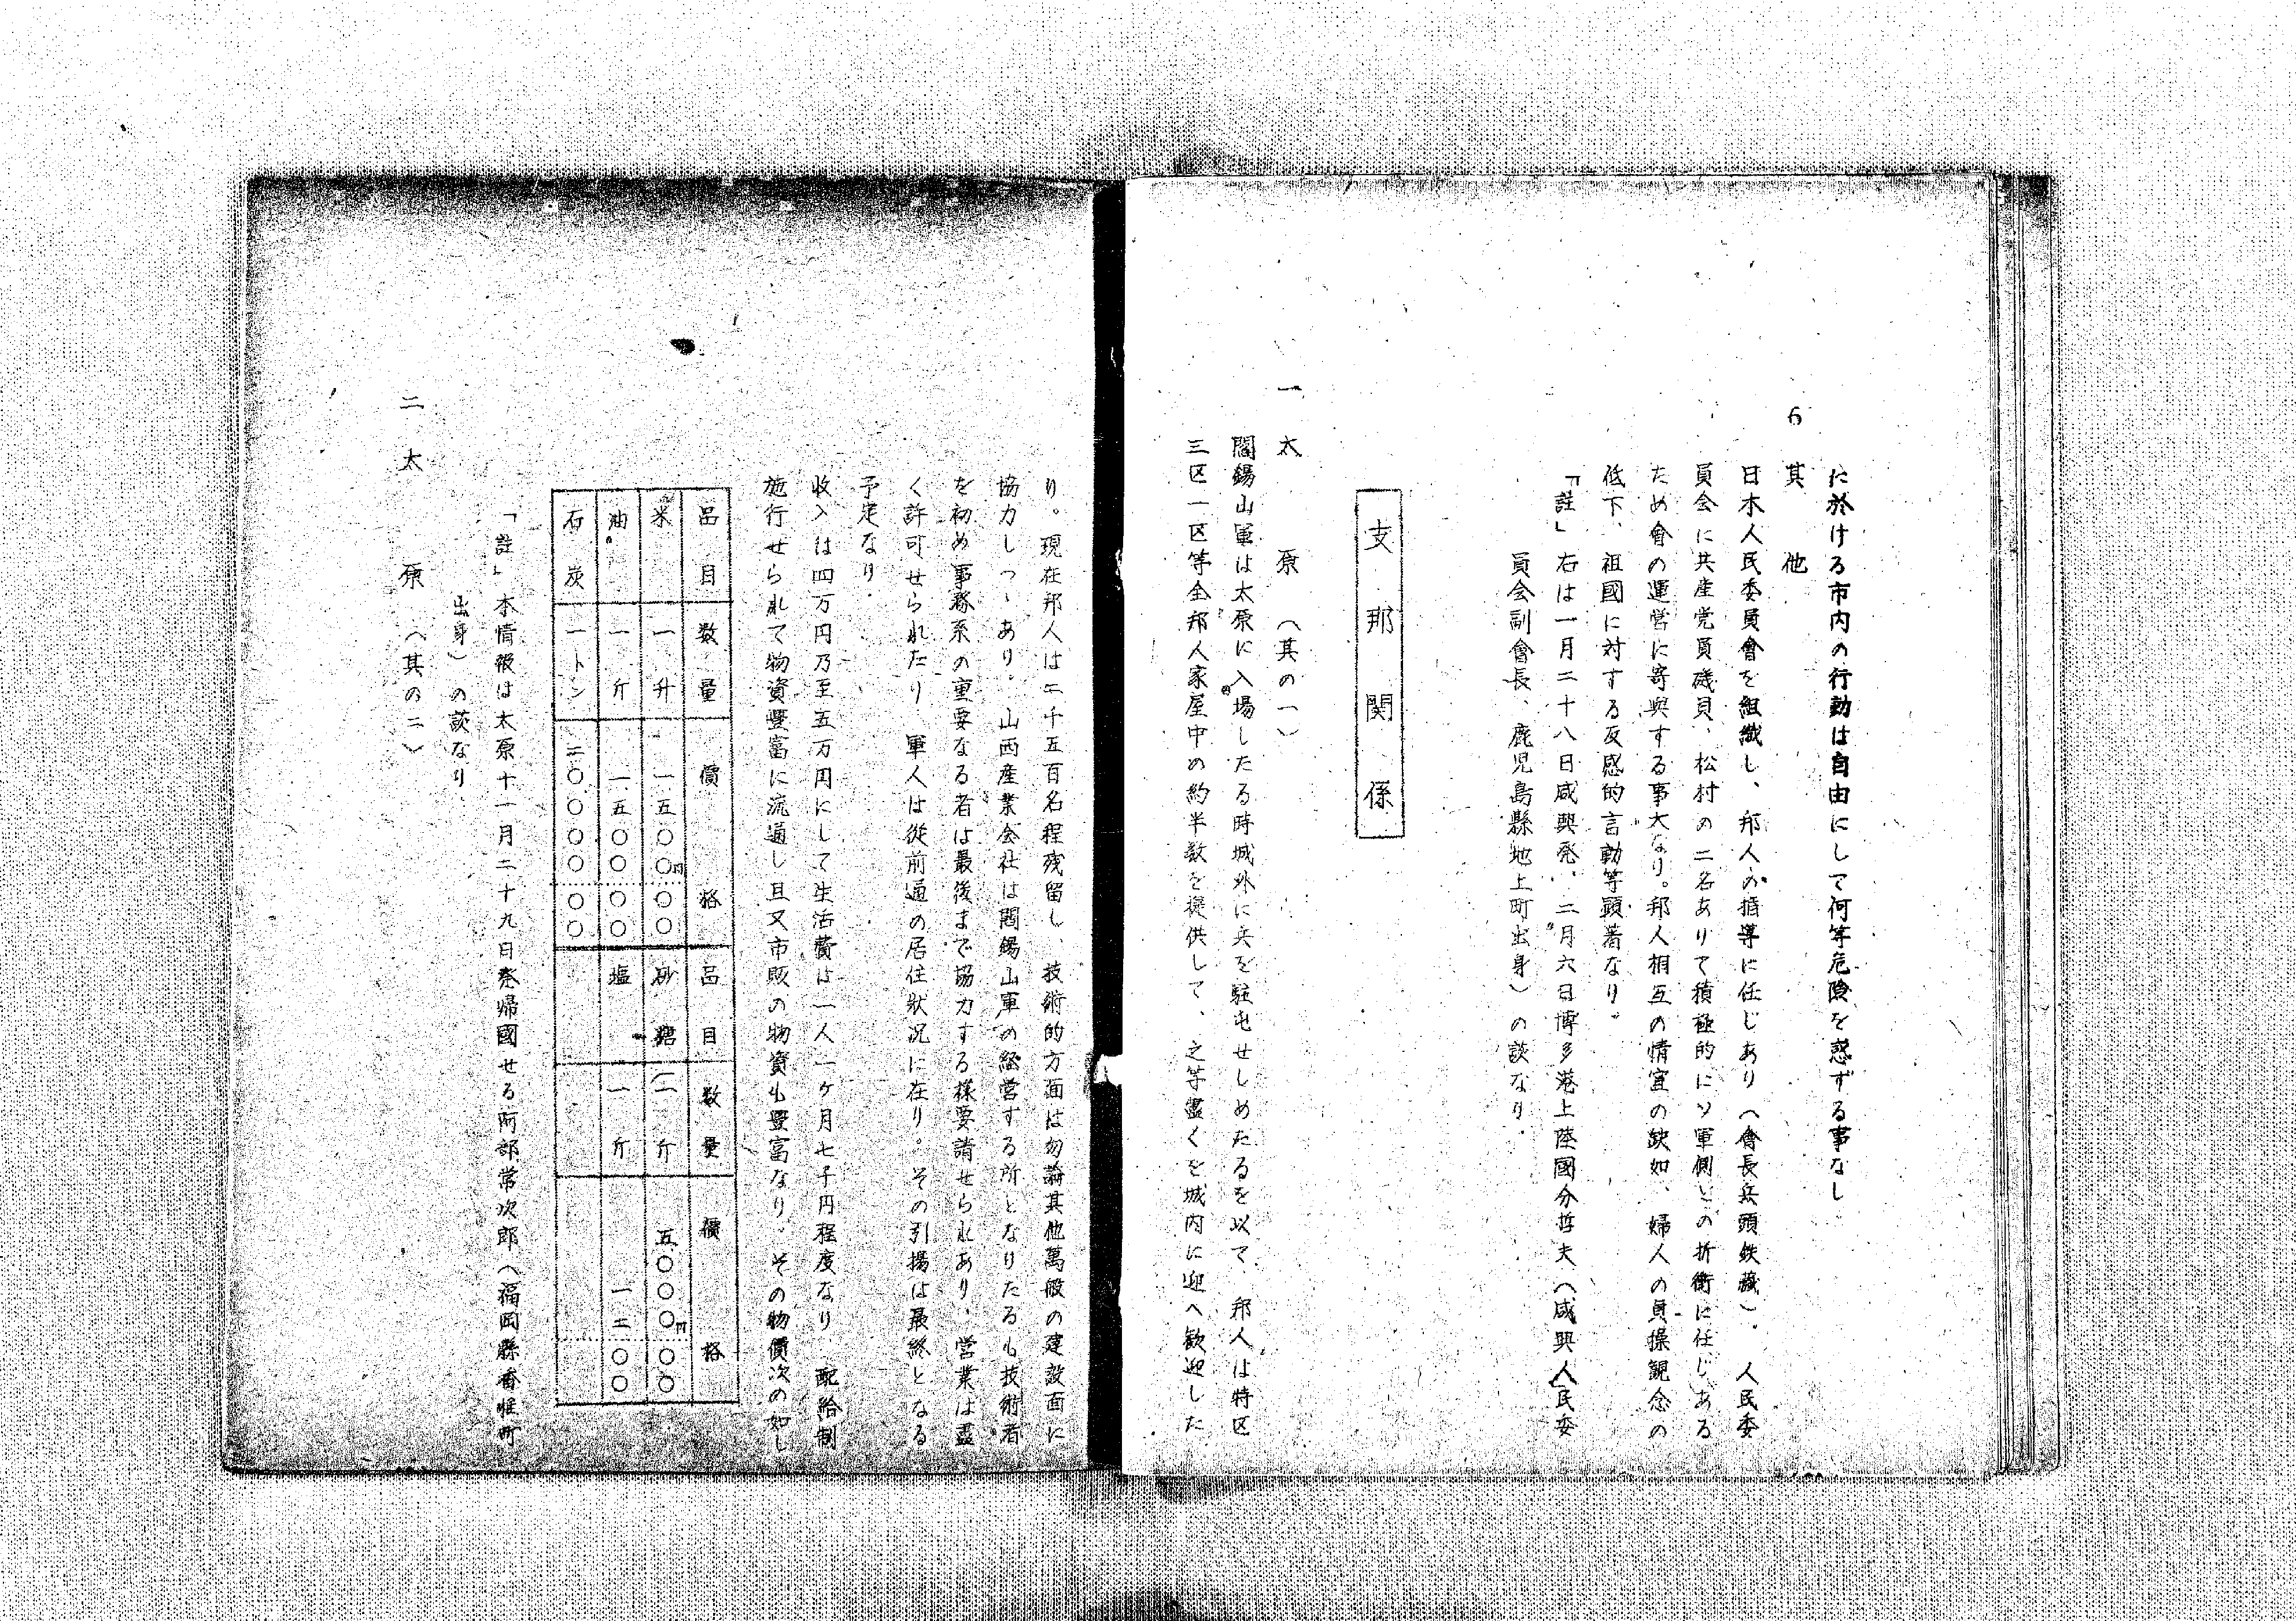 に於ける市内の行動は自由にして何等危険を惑ずる事なし
6 其他
日本人民委員會を組織し、邦人の指導に任じあり（會長兵頭鉄藏）．人民委
員会に共産党員磯貝、松村の二名ありて積極的にソ軍側との折衝に任じある
ため會の運営に寄與する事大なり。邦人相互の情宜の缺如、婦人の貞操観念の
低下、祖國に対する反感的言動等顕著なり。
「註」右は一月二十八日咸興発、二月六日博多港上陸國分哲夫（咸興人民委
員会副會長、鹿児島縣地上町出身）の談なり．
支那関係
一 太原（其の一）
閻錫山軍は太原に入場したる時城外に兵を駐屯せしめたるを以て、邦人は特区
三区一区等全邦人家屋中の約半数を提供して、之等盡くを城内に迎へ歓迎した
り。現在邦人は二千五百名程残留し、技術的方面は勿論其他萬般の建設面に
協力しつゝあり．山西産業会社は閻錫山軍の経営する所となりたるも技術者
を初め事務系の重要なる者は最後まで協力する様要請せられあり、営業は盡
く許可せられたり 軍人は従前通の居住状況に在り。その引揚は最終となる
予定なり．
收入は四万円乃至五万円にして生活費は一人一ヶ月七千円程度なり 配給制
施行せられて物資豐富に流通し且又市販の物資も豐富なり．その物價次の如し
品目 数量 價格 品目 数量 價格
米 一升 一五〇〇円〇〇 砂糖 一斤 五〇〇〇円〇〇
油 一斤 一五〇〇〇〇 塩 一斤 一二〇〇
石炭 一トン 二〇〇〇〇〇〇
「註」本情報は太原十一月二十九日発帰國せる阿部常次郎（福岡縣香椎町
出身）の談なり
二 太原（其の二）